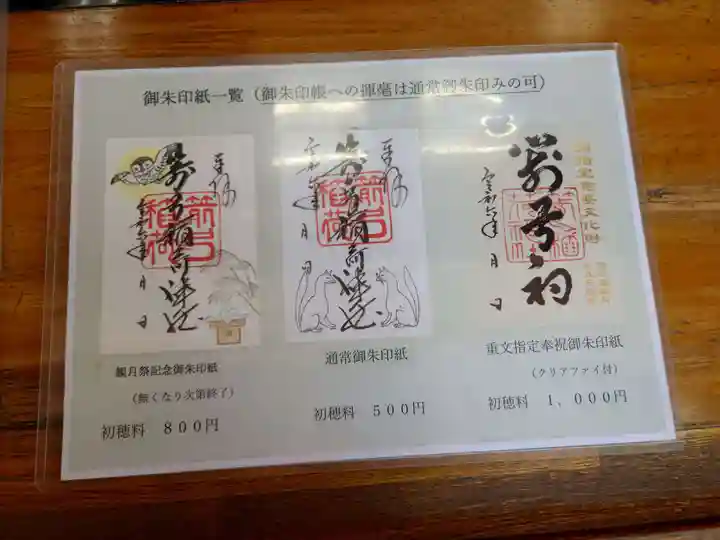 御朱印紙一覧（御朱印帳への揮毫は通常御朱印みの可）
奉拝
箭弓稲荷神社
箭弓稲荷
令和六年 月 日
観月祭記念御朱印紙
（無くなり次第終了）
初穂料 ８００円
奉拝
箭弓稲荷神社
箭弓稲荷
令和六年 月 日
通常御朱印紙
初穂料 ５００円
国指定重要文化財
箭弓稲荷
令和六年 月 日
重文指定奉祝御朱印紙
（クリアファイ付）
初穂料 １，０００円